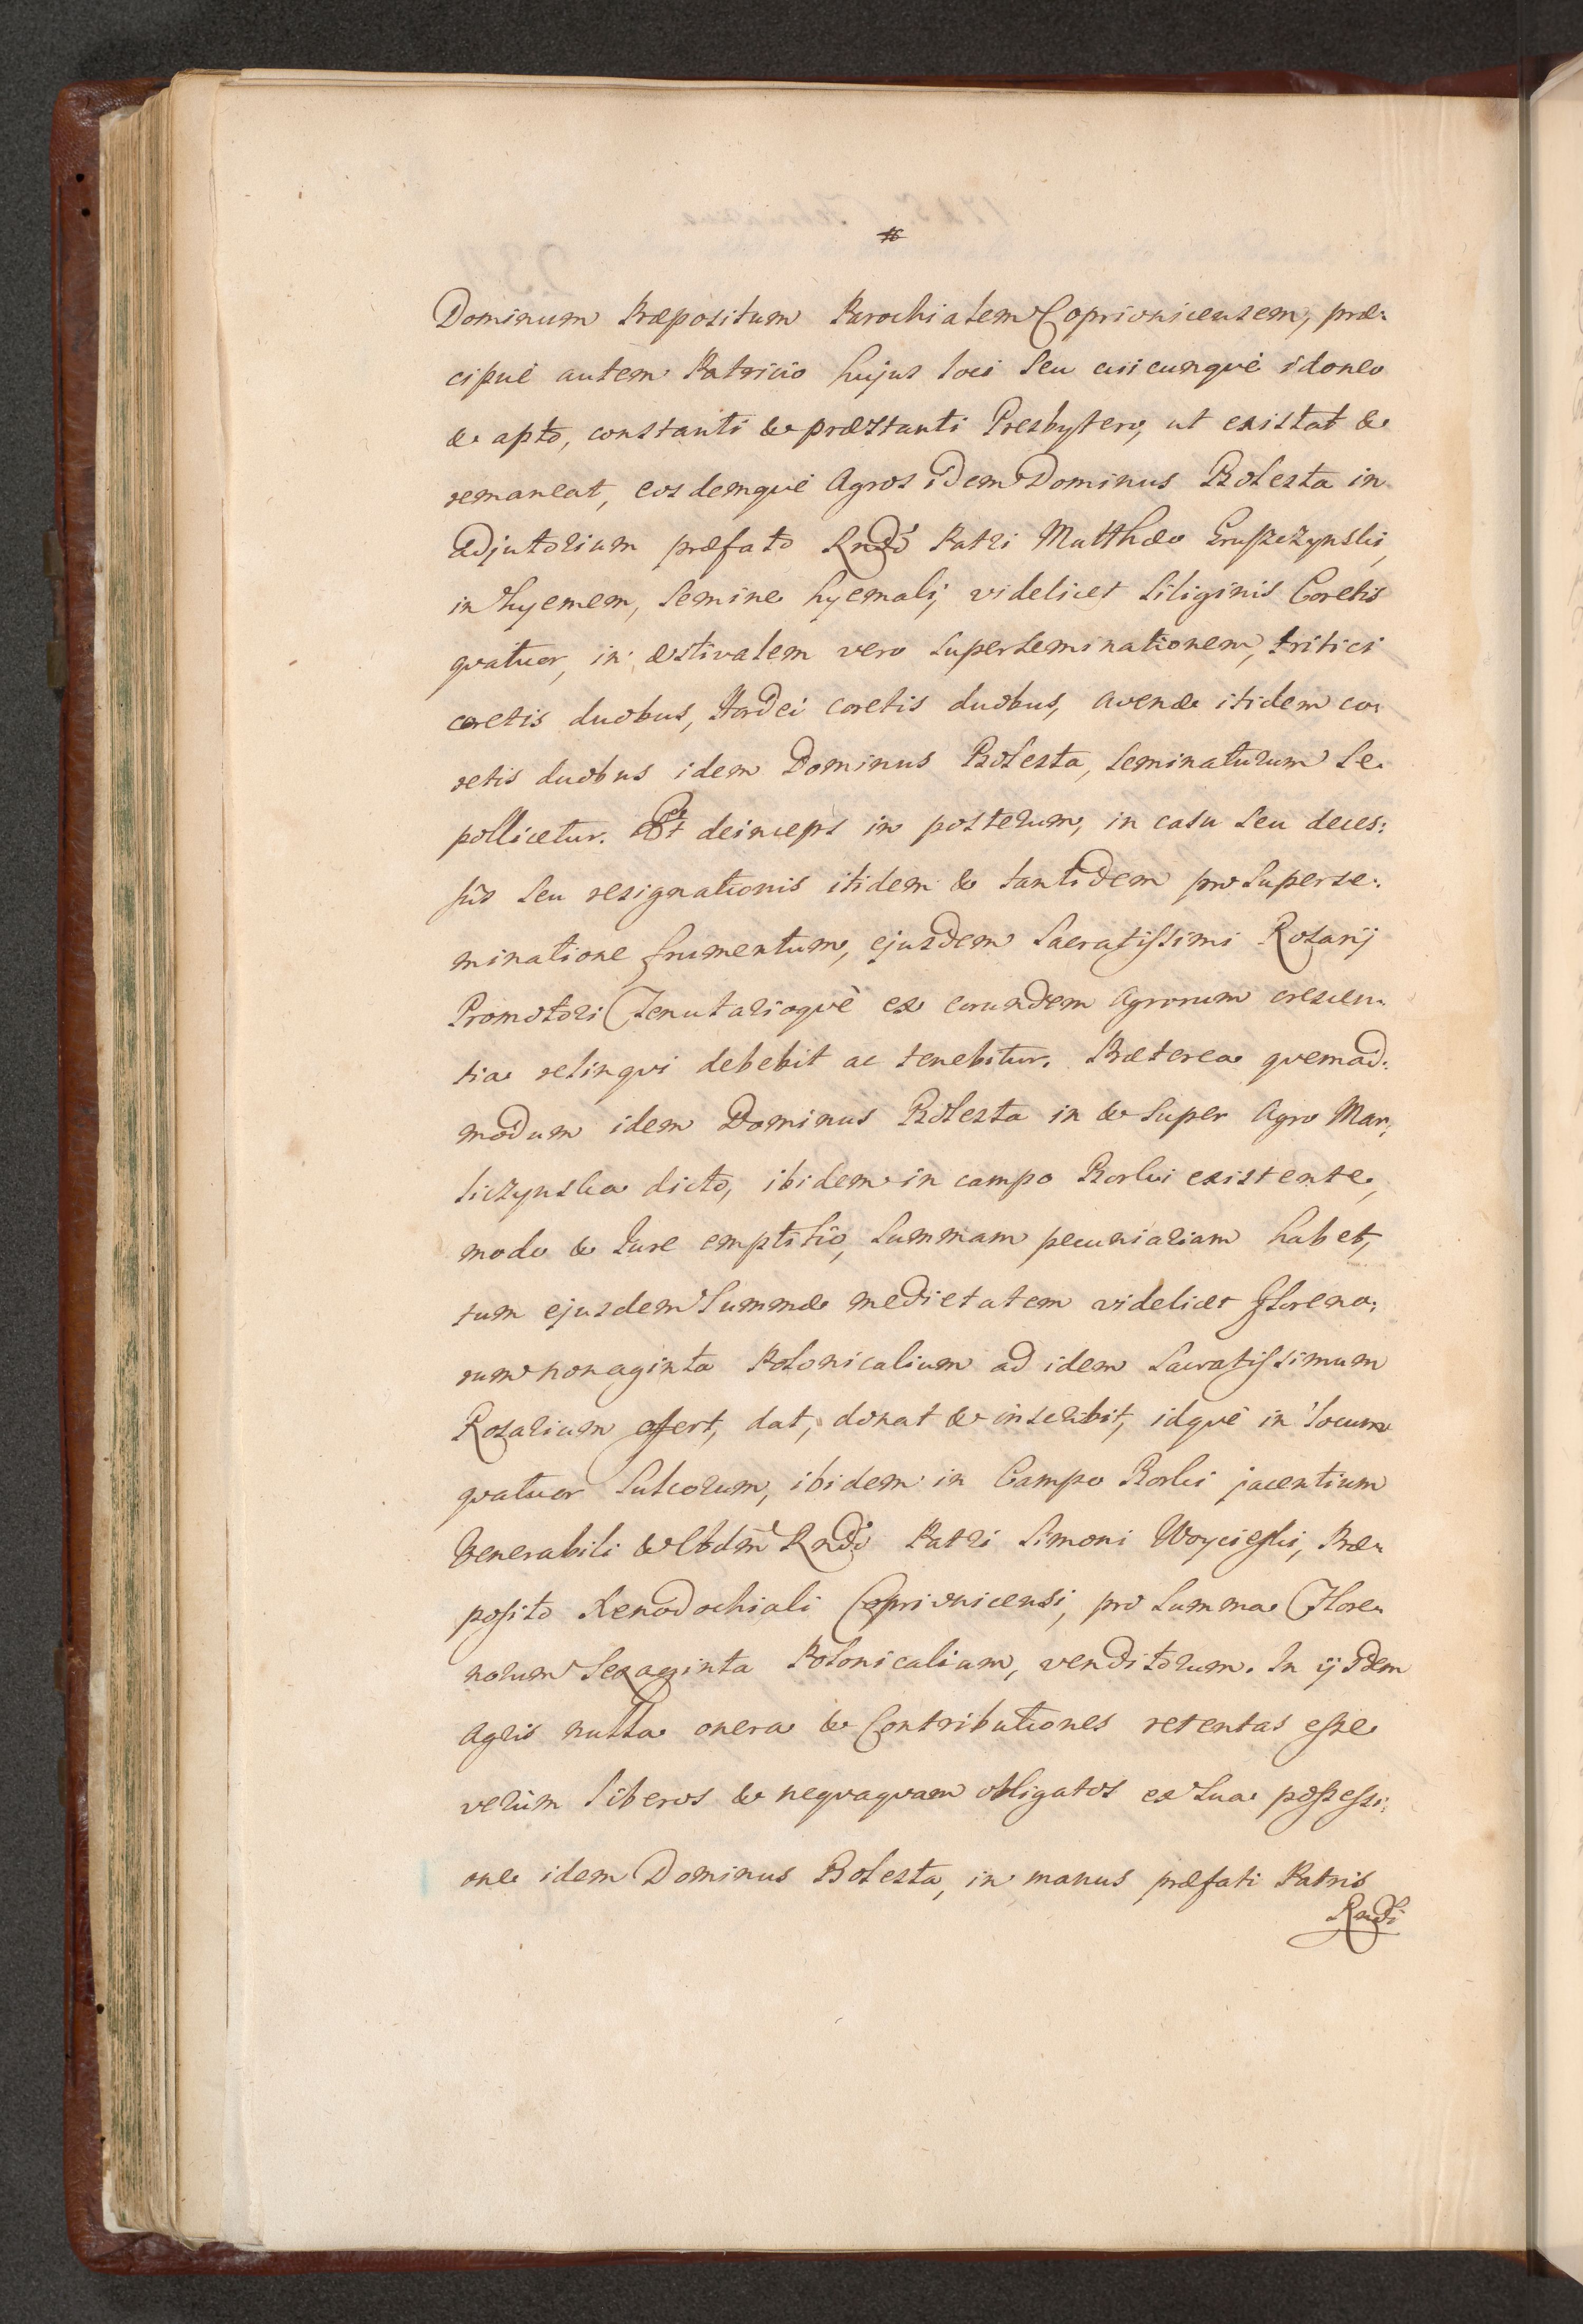 Dominum Præpositum Parochialem Coprivnicensem, præ:
cipuè autem Patricio hujus loci seu cuicunquè idoneo
& apto, constanti & præstanti Presbytero, ut existat &
remaneat, eosdemquè Agros idem Dominus Bolesta in
adjutorium præfato Rndo Patri Matthæo Gruszczynski,
in hyemem, semine hyemali, videlicet siliginis Coretis
qvatuor, in æstivalem vero superseminationem, tritici
coretis duobus, Hordei coretis duobus, avenæ itidem co:
retis duobus idem Dominus Bolesta, seminaturum se
pollicetur. Et deinceps in posterum, in casu seu deces:
sûs seu resignationis itidem & tantidem pro superse:
minatione frumentum, ejusdem Sacratissimi Rosarij
Promotori Tenutarioquè ex eorundem Agrorum crescen:
tia relinqvi debebit ac tenebitur. Præterea qvemad:
modum idem Dominus Bolesta in & super Agro Mar:
siczynska dicto, ibidem in campo Borki existente,
modo & Jure emptitio, summam pecuniariam habet,
tum ejusdem Summæ medietatem videlicet floreno:
rum nonaginta Polonicalium ad idem Sacratissimum
Rosarium offert, dat, donat & inscribit, idquè in locum
qvatuor Sulcorum, ibidem in Campo Borki jacentium
Venerabili & Rndo Patri Simoni Woycieski, Præ:
posito Xenodochiali Coprivnicensi, pro summa Flore:
norum Sexaginta Polonicalium, venditorum. In ijsdem
Agris nulla onera & Contributiones retentas esse
verùm liberos & neqvaqvam obligatos ex sua possessi:
one idem Dominus Bolesta, in manus præfati Patris
Rndi